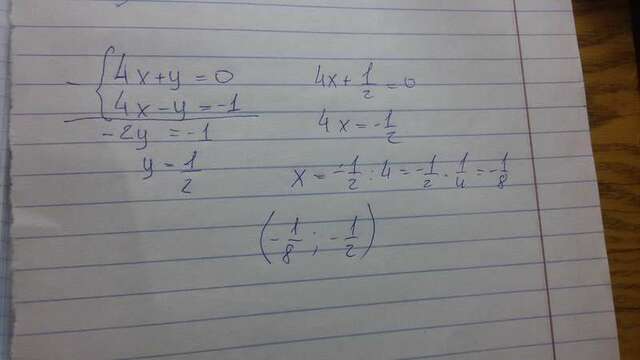 - { 4x+y=0
4x-y=-1
-2y = -1
y = 1/2
4x + 1/2 = 0
4x = -1/2
x = -1/2 : 4 = -1/2 · 1/4 = -1/8
(-1/8 ; -1/2)